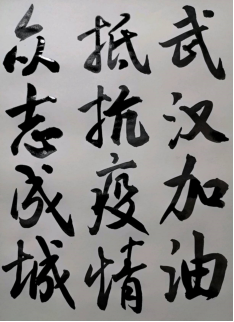 武汉加油
抵抗疫情
众志成城